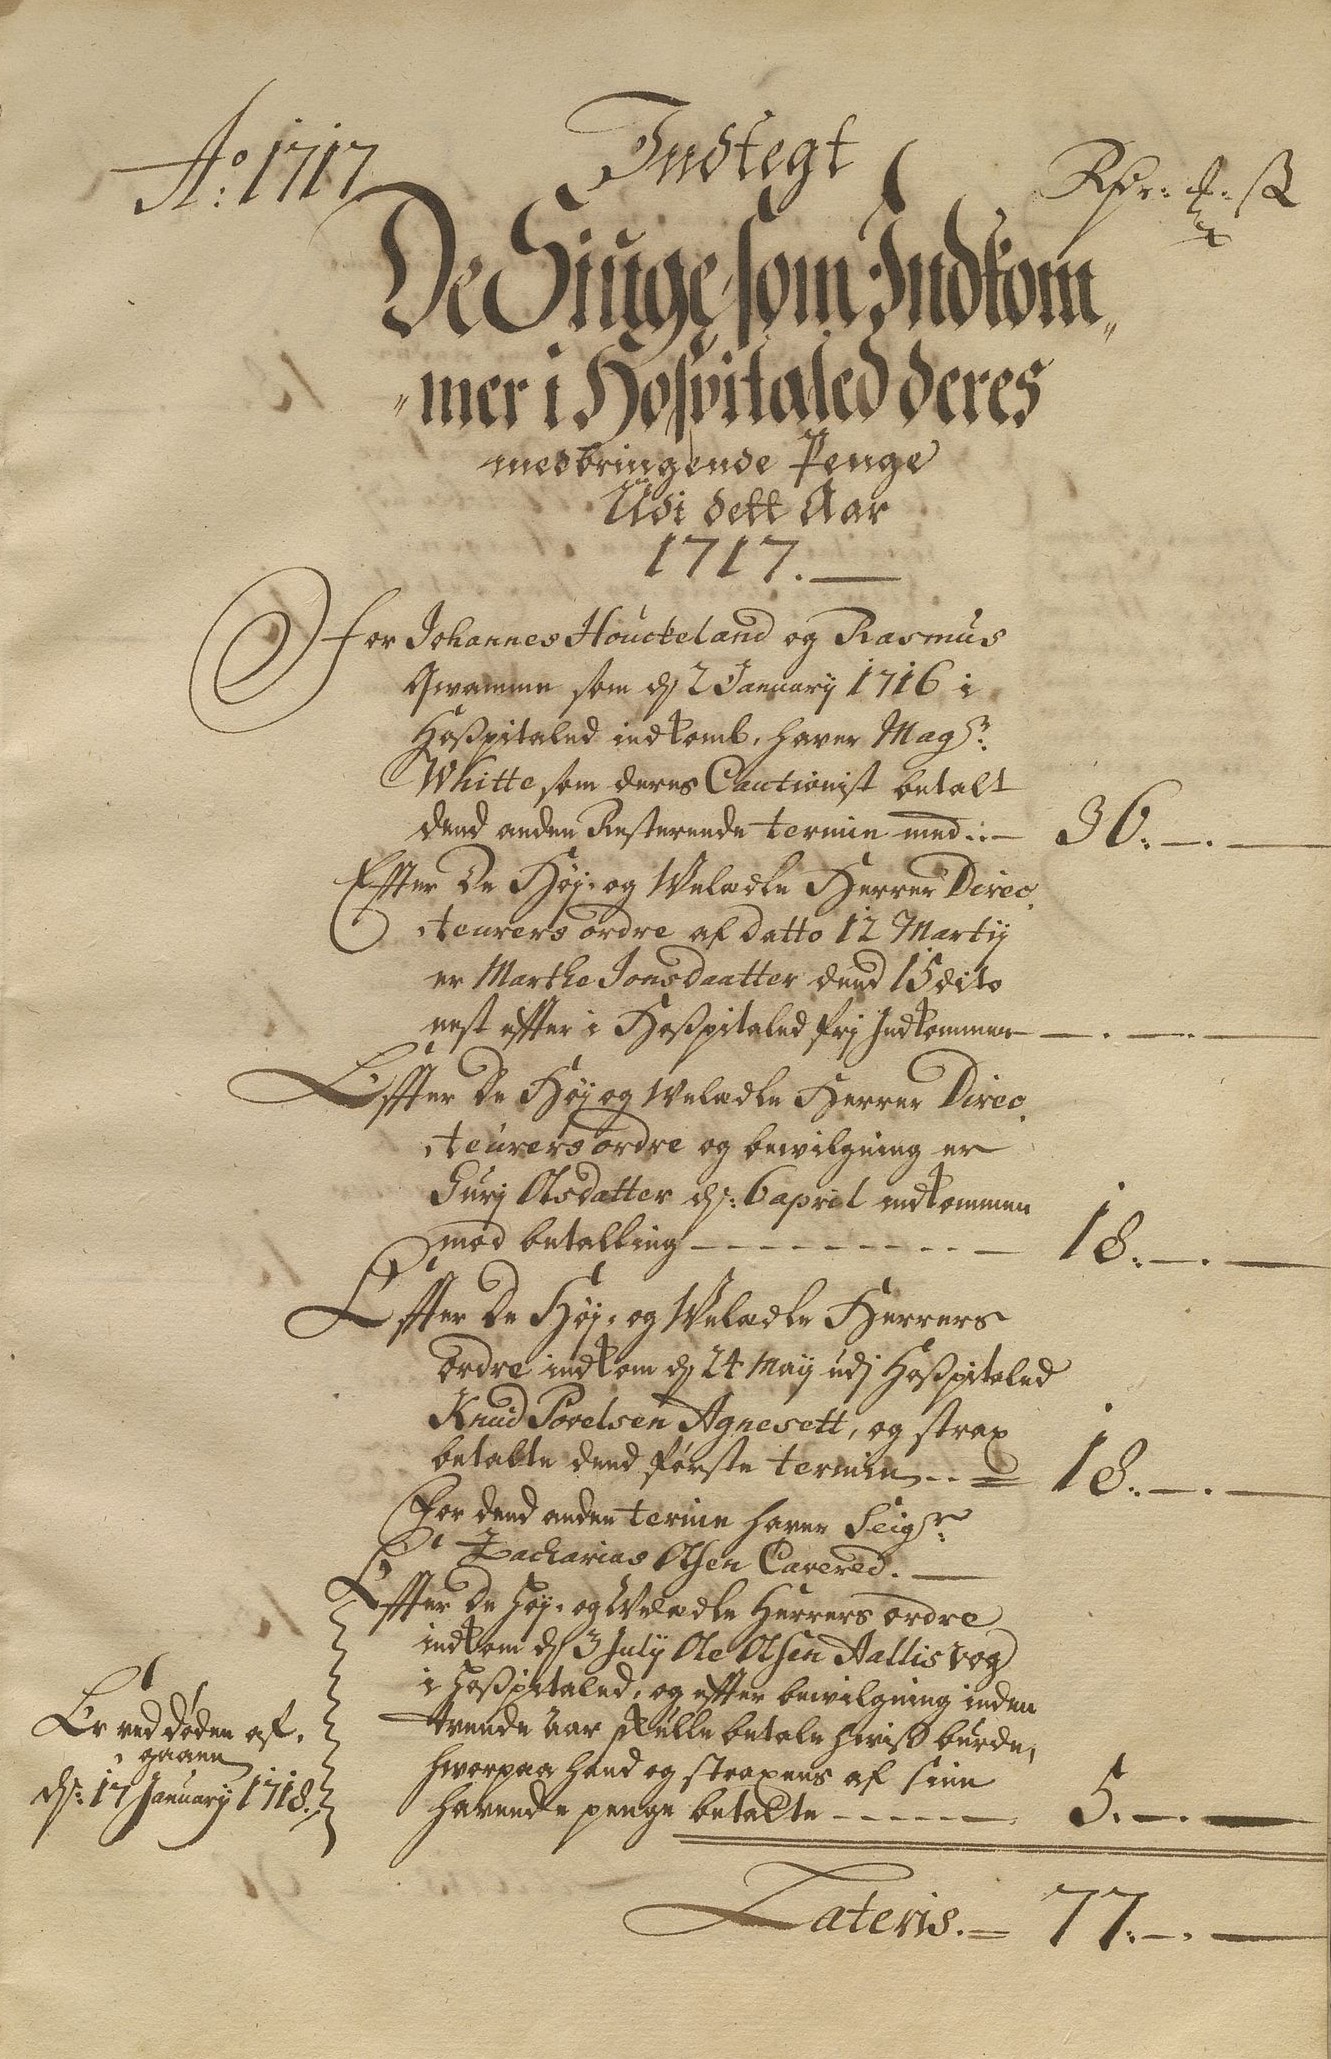 Ao: 1717
Indtegt
Rdr: ß
De Siuge som Indkom„
„mer i Hospitaled deres
medbringende Penge
Udi dett Aar
1717.
for Johannes Houckeland og Rasmus
Qvamme som dj 2 January 1716 i
Hospitaled indkomb, haver Magr:
Whitte som deres Cautionist betalt
dend anden Resterende termin med 36.
Effter De Høj- og Welædle Herrer Direc,
teurers ordre af datto 12 Martij
er Marthe Jonsdaatter dend 15 dito
nest effter i Hospitaled frj Indkommen
Effter De Høj og Welædle Herrer Direc,
teurers ordre og bewilgning er
Gurj Olsdatter dj: 6 april indkommen
mod betalling 18.
Effter De Høj- og Welædle Herrers
ordre indkom dj 24 Maij udj Hospitaled
Knud Povelsen Agnesett, og strax
betalte dend første termin 18.
for dend anden termin haver Seigr:
Zacharias Olsen Cavered.
Effter De Høj- og Welædle Herrers ordre
indkom dj 3 Julij Ole Olsen Aallisvog
i Hospitaled, og effter bewilgning inden
trende aar skulle betale hwiss burde,
hworpaa hand og straxens af sine
havende penge betalte 5.
Er ved døden af,
gaaen
dj: 17 January 1718.
Lateris. 77.